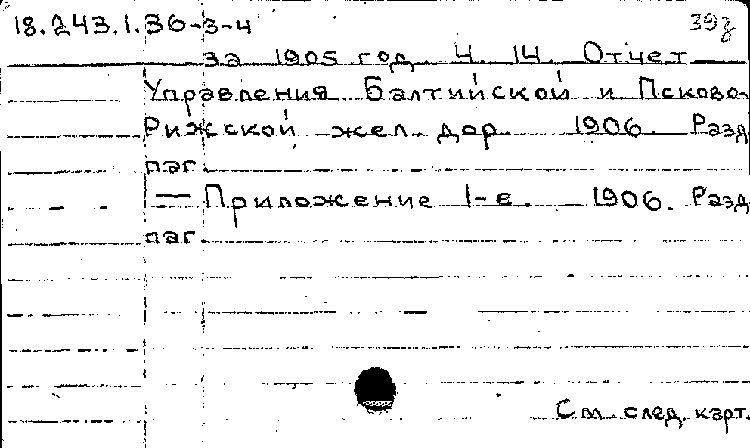 18.243.1.36-3-4
39з
за 1905 год. Ч. 14. Отчет
Управления Балтийской и Псково-
Рижской жел. дор. 1906. Разд.
паг.
— Приложение 1-е. 1906. Разд.
паг.
См. след. карт.